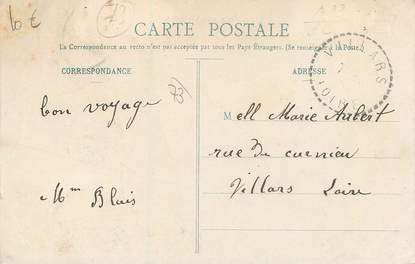 10 €
CARTE POSTALE
La Correspondance au recto n'est pas acceptée par tous les Pays Étrangers. (Se renseigner à la Poste.)
CORRESPONDANCE
ADRESSE
VILLARS
bon voyage
Mell Marie Aubert
rue du
Mme Blais
Villars Loire